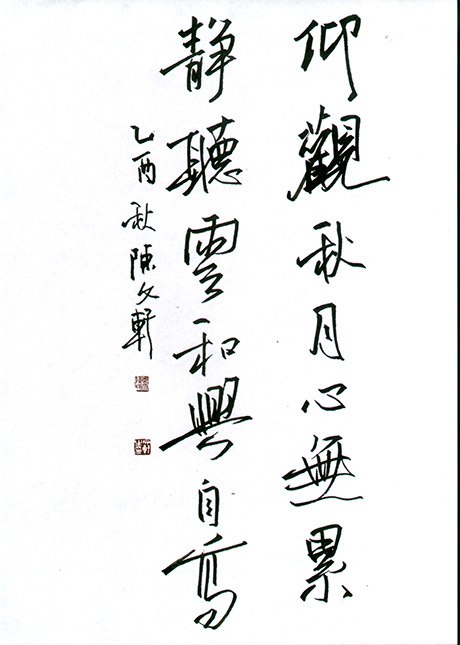 仰觀秋月心無累
靜聽雲和興自高
乙酉秋陳文軒